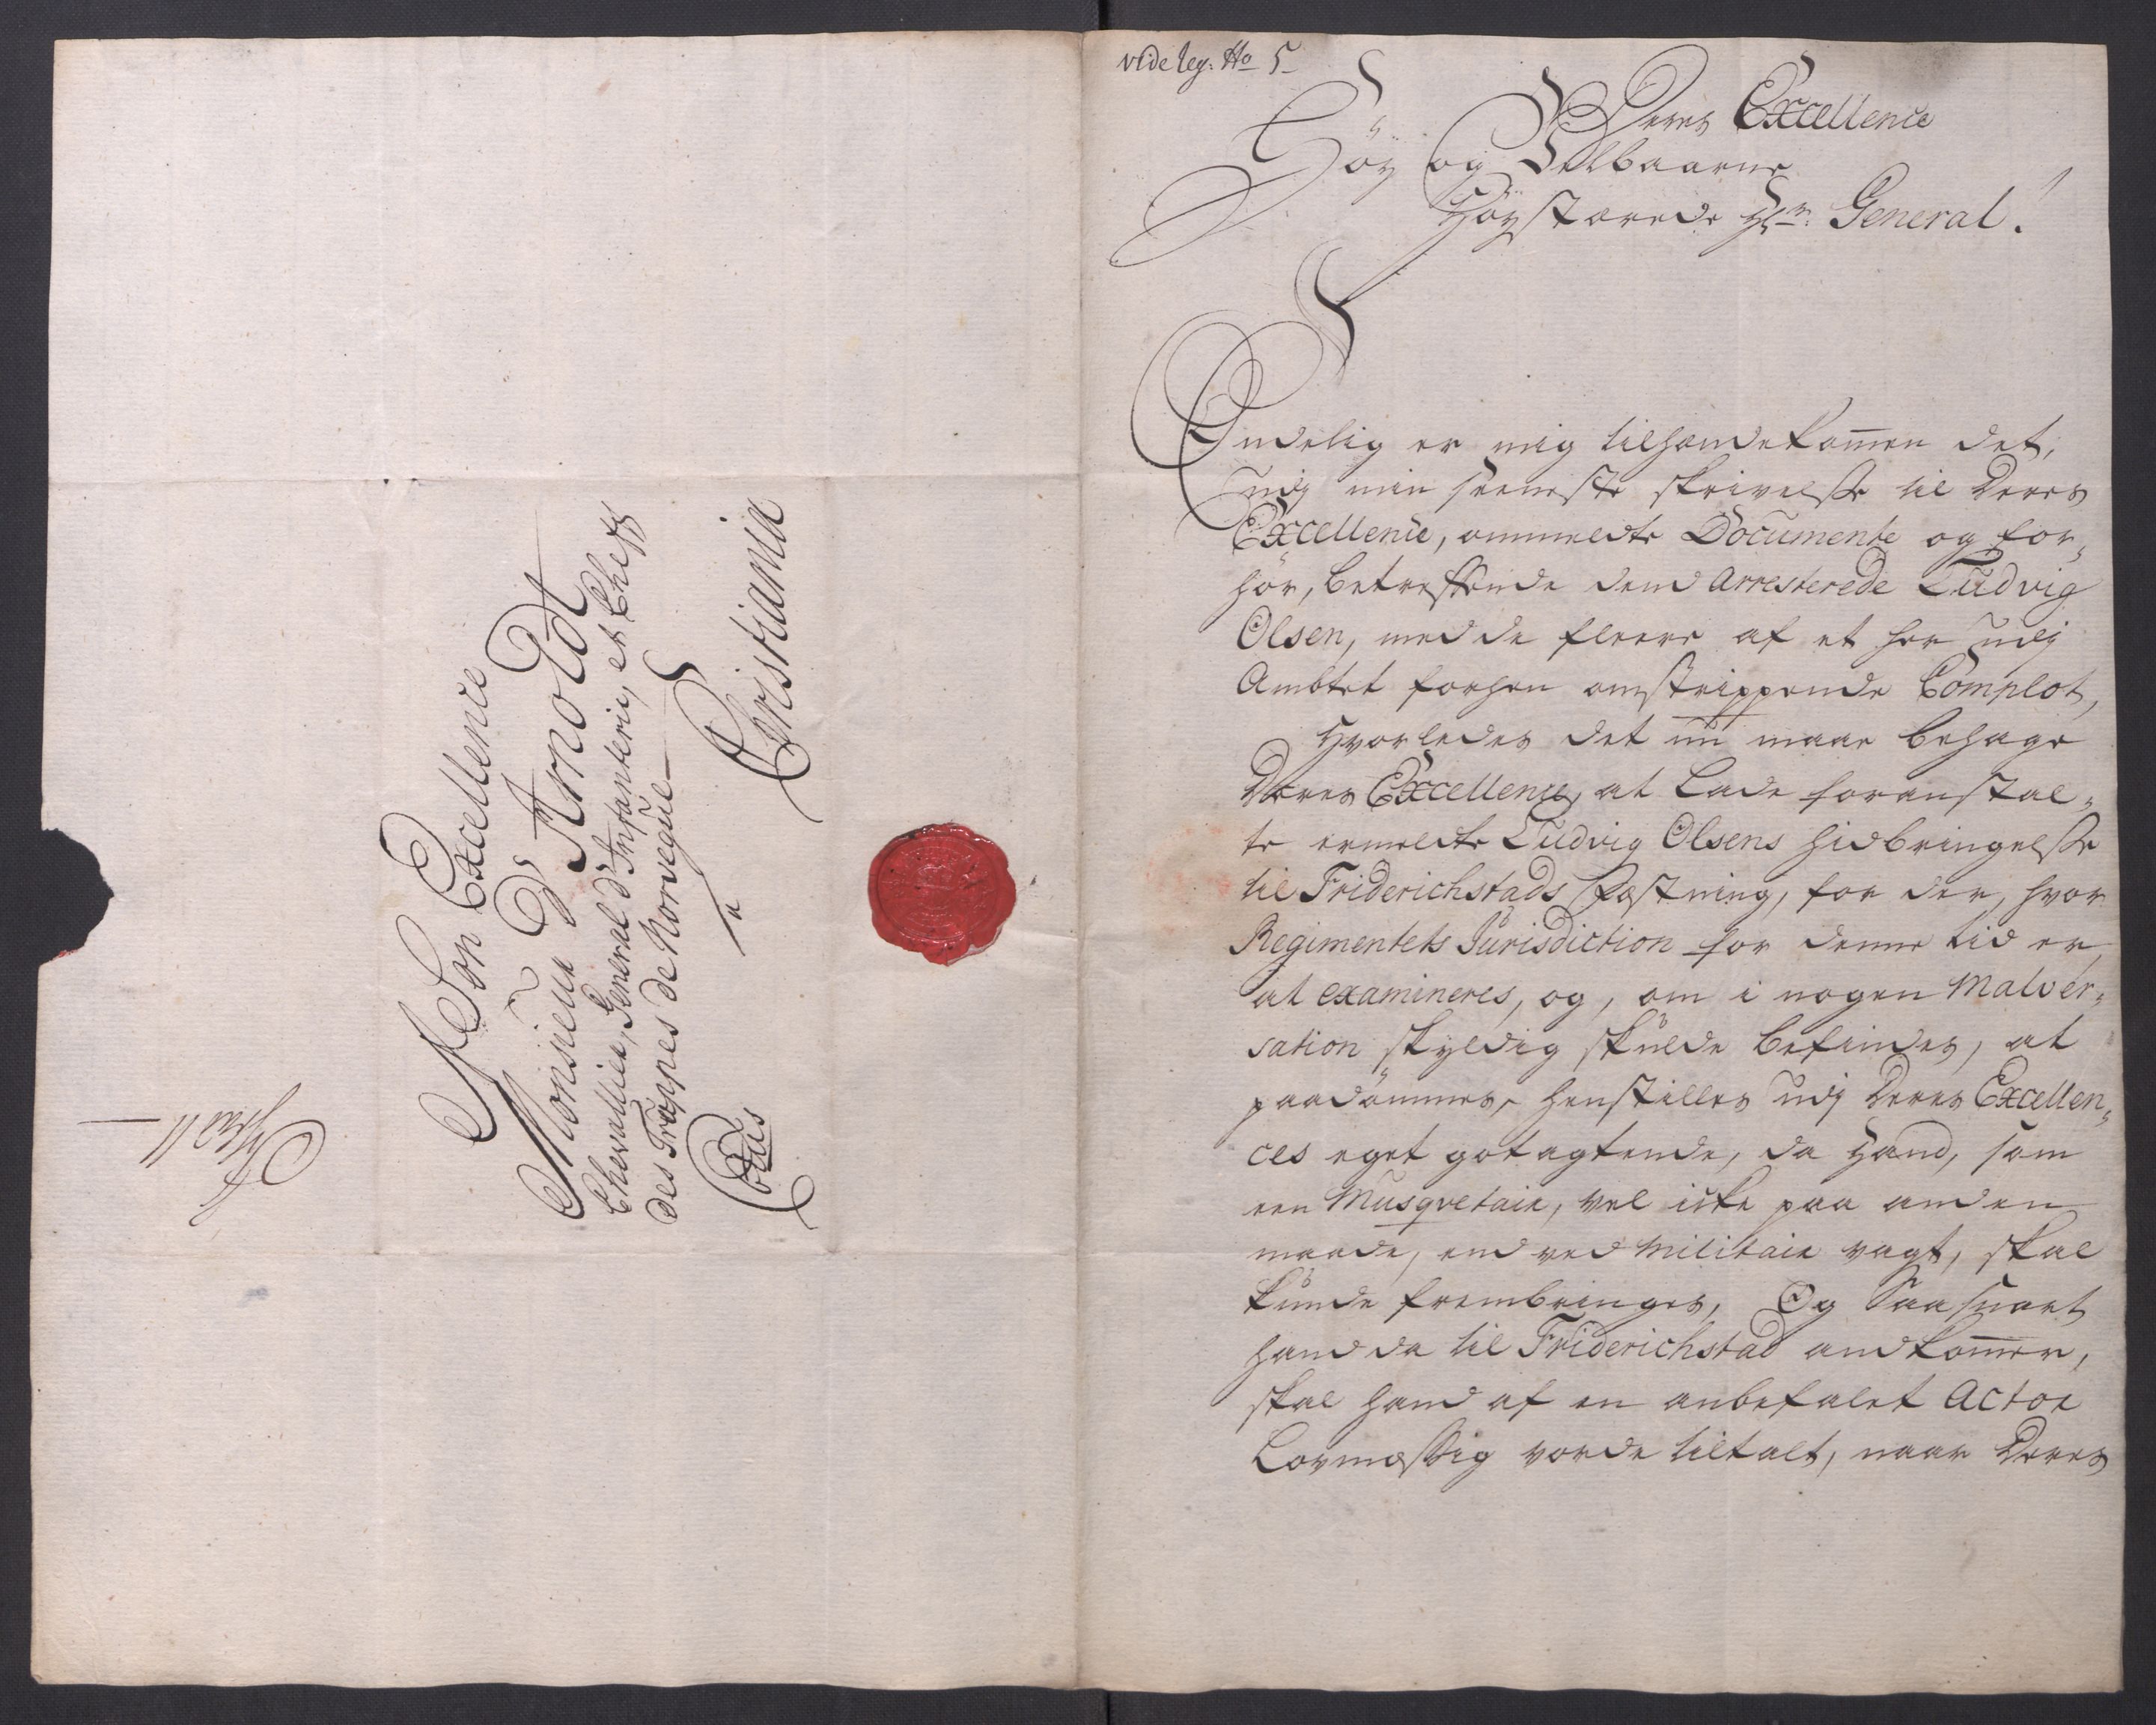 A Son Excellence
Monsieur D' Arnoldt
Chevallier, General d'Infanterie, et Cheff
des Trouppes de Norvegue
a
Christiania
vide leg: No 5
Deres Excellence
Höy og Velbaarne
Höystærede Hr: General!
Endelig er mig tilhændekom̄en det,
udj min seeneste skrivelsse til Deres
Excellence, ommeldte Documente og for„
hör, betreffende dend Arresterede Ludvig
Olsen, med de fleere af et her udj
Ambtet forhen omstrippende Complot,
Hvorledes det nu maae behage
Deres Excellence, at lade foranstal„
te ermeldte Ludvig Olsens hidbringelsse
til Friderichstads Fæstning, for der, hvor
Regimentets Jurisdiction for denne tid er,
at examineres, og, om i nogen Malver„
sation skyldig skulde befindes, at
paadömmes, henstilles udj Deres Excellen„
ces eget gotagtende, da Hand, som
een Musqvetair, vel icke paa anden
maade, end ved Militair vagt, skal
kunde frembringes, Og Saasnart
hand da til Friderichstad andkom̄er,
skal hand af en anbefalet Actor
Lovmæssig vorde tiltalt, naar Deres